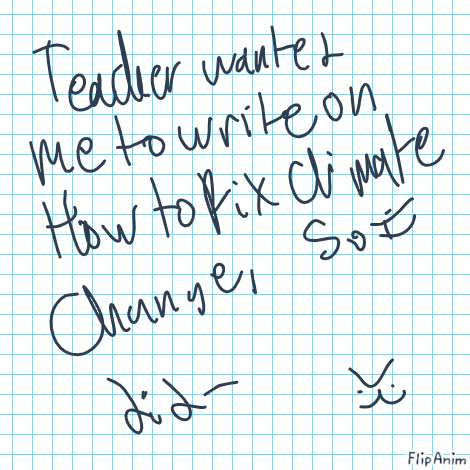 Teacher wanted
me to write on
How to fix Climate
Change, So I
did-
FlipAnim